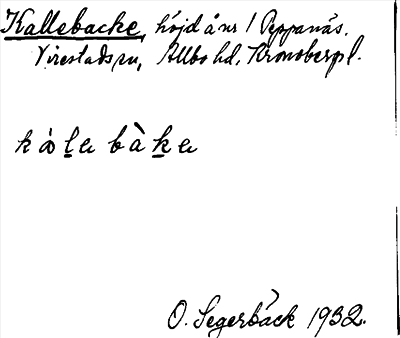 Kallebacke, höjd å nr 1 Peppanäs.
Virestads sn, Allbo hd, Kronobergs l.
kàle bàke
O. Segerbäck 1932.